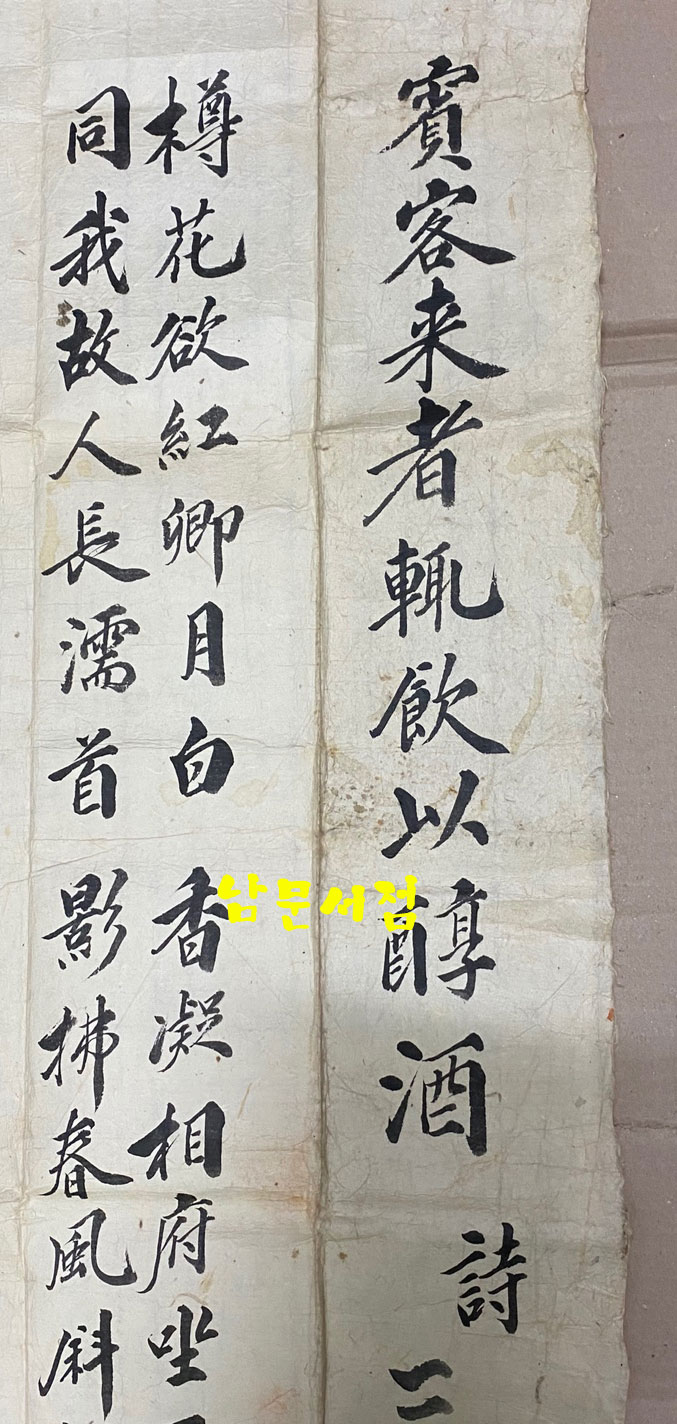 賓客来者輒飮以醇酒
詩二
樽花欲紅卿月白
香凝相府坐
同我故人長濡首
影拂春風斜
남문서점